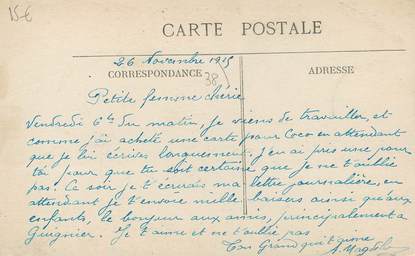 15€
CARTE POSTALE
26 Novembre 1915
CORRESPONDANCE
38
ADRESSE
Petite femme chérie
Vendredi 6h du matin, je viens de travailler, et
comme j'ai acheté une carte pour Coco en attendant
que je lui écrives longuement, j'en ai pris une pour
toi pour que tu soit certaine que je ne t'oublie
pas. Ce soir je t'écrirais ma lettre journalière, en
attendant je t'envoie mille baisers ainsi qu'aux
enfants, le bonjour aux amis, principalement a
Guignier. Je t'aime et ne t'oublie pas
Ton Grand qui t'aime